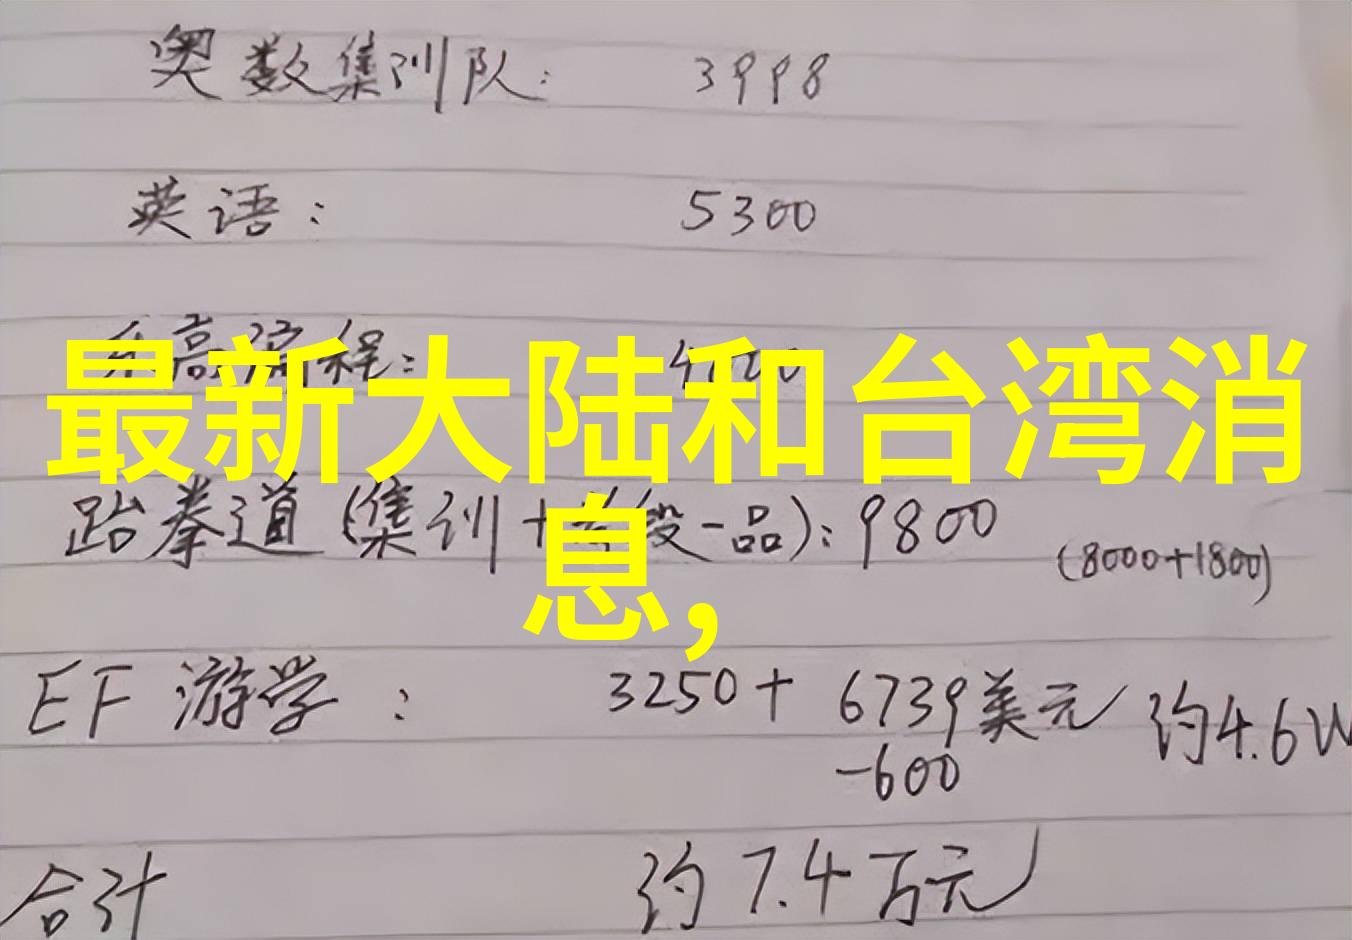 奥数集训队: 3998
英语: 5300
高编程:
最新大陆和台湾消
跆拳道(集训+ 段一品): 9800 (8000+1800)
息,
EF 游学: 3250+ 6739美元 约4.6W
-600
合计 约7.4万元